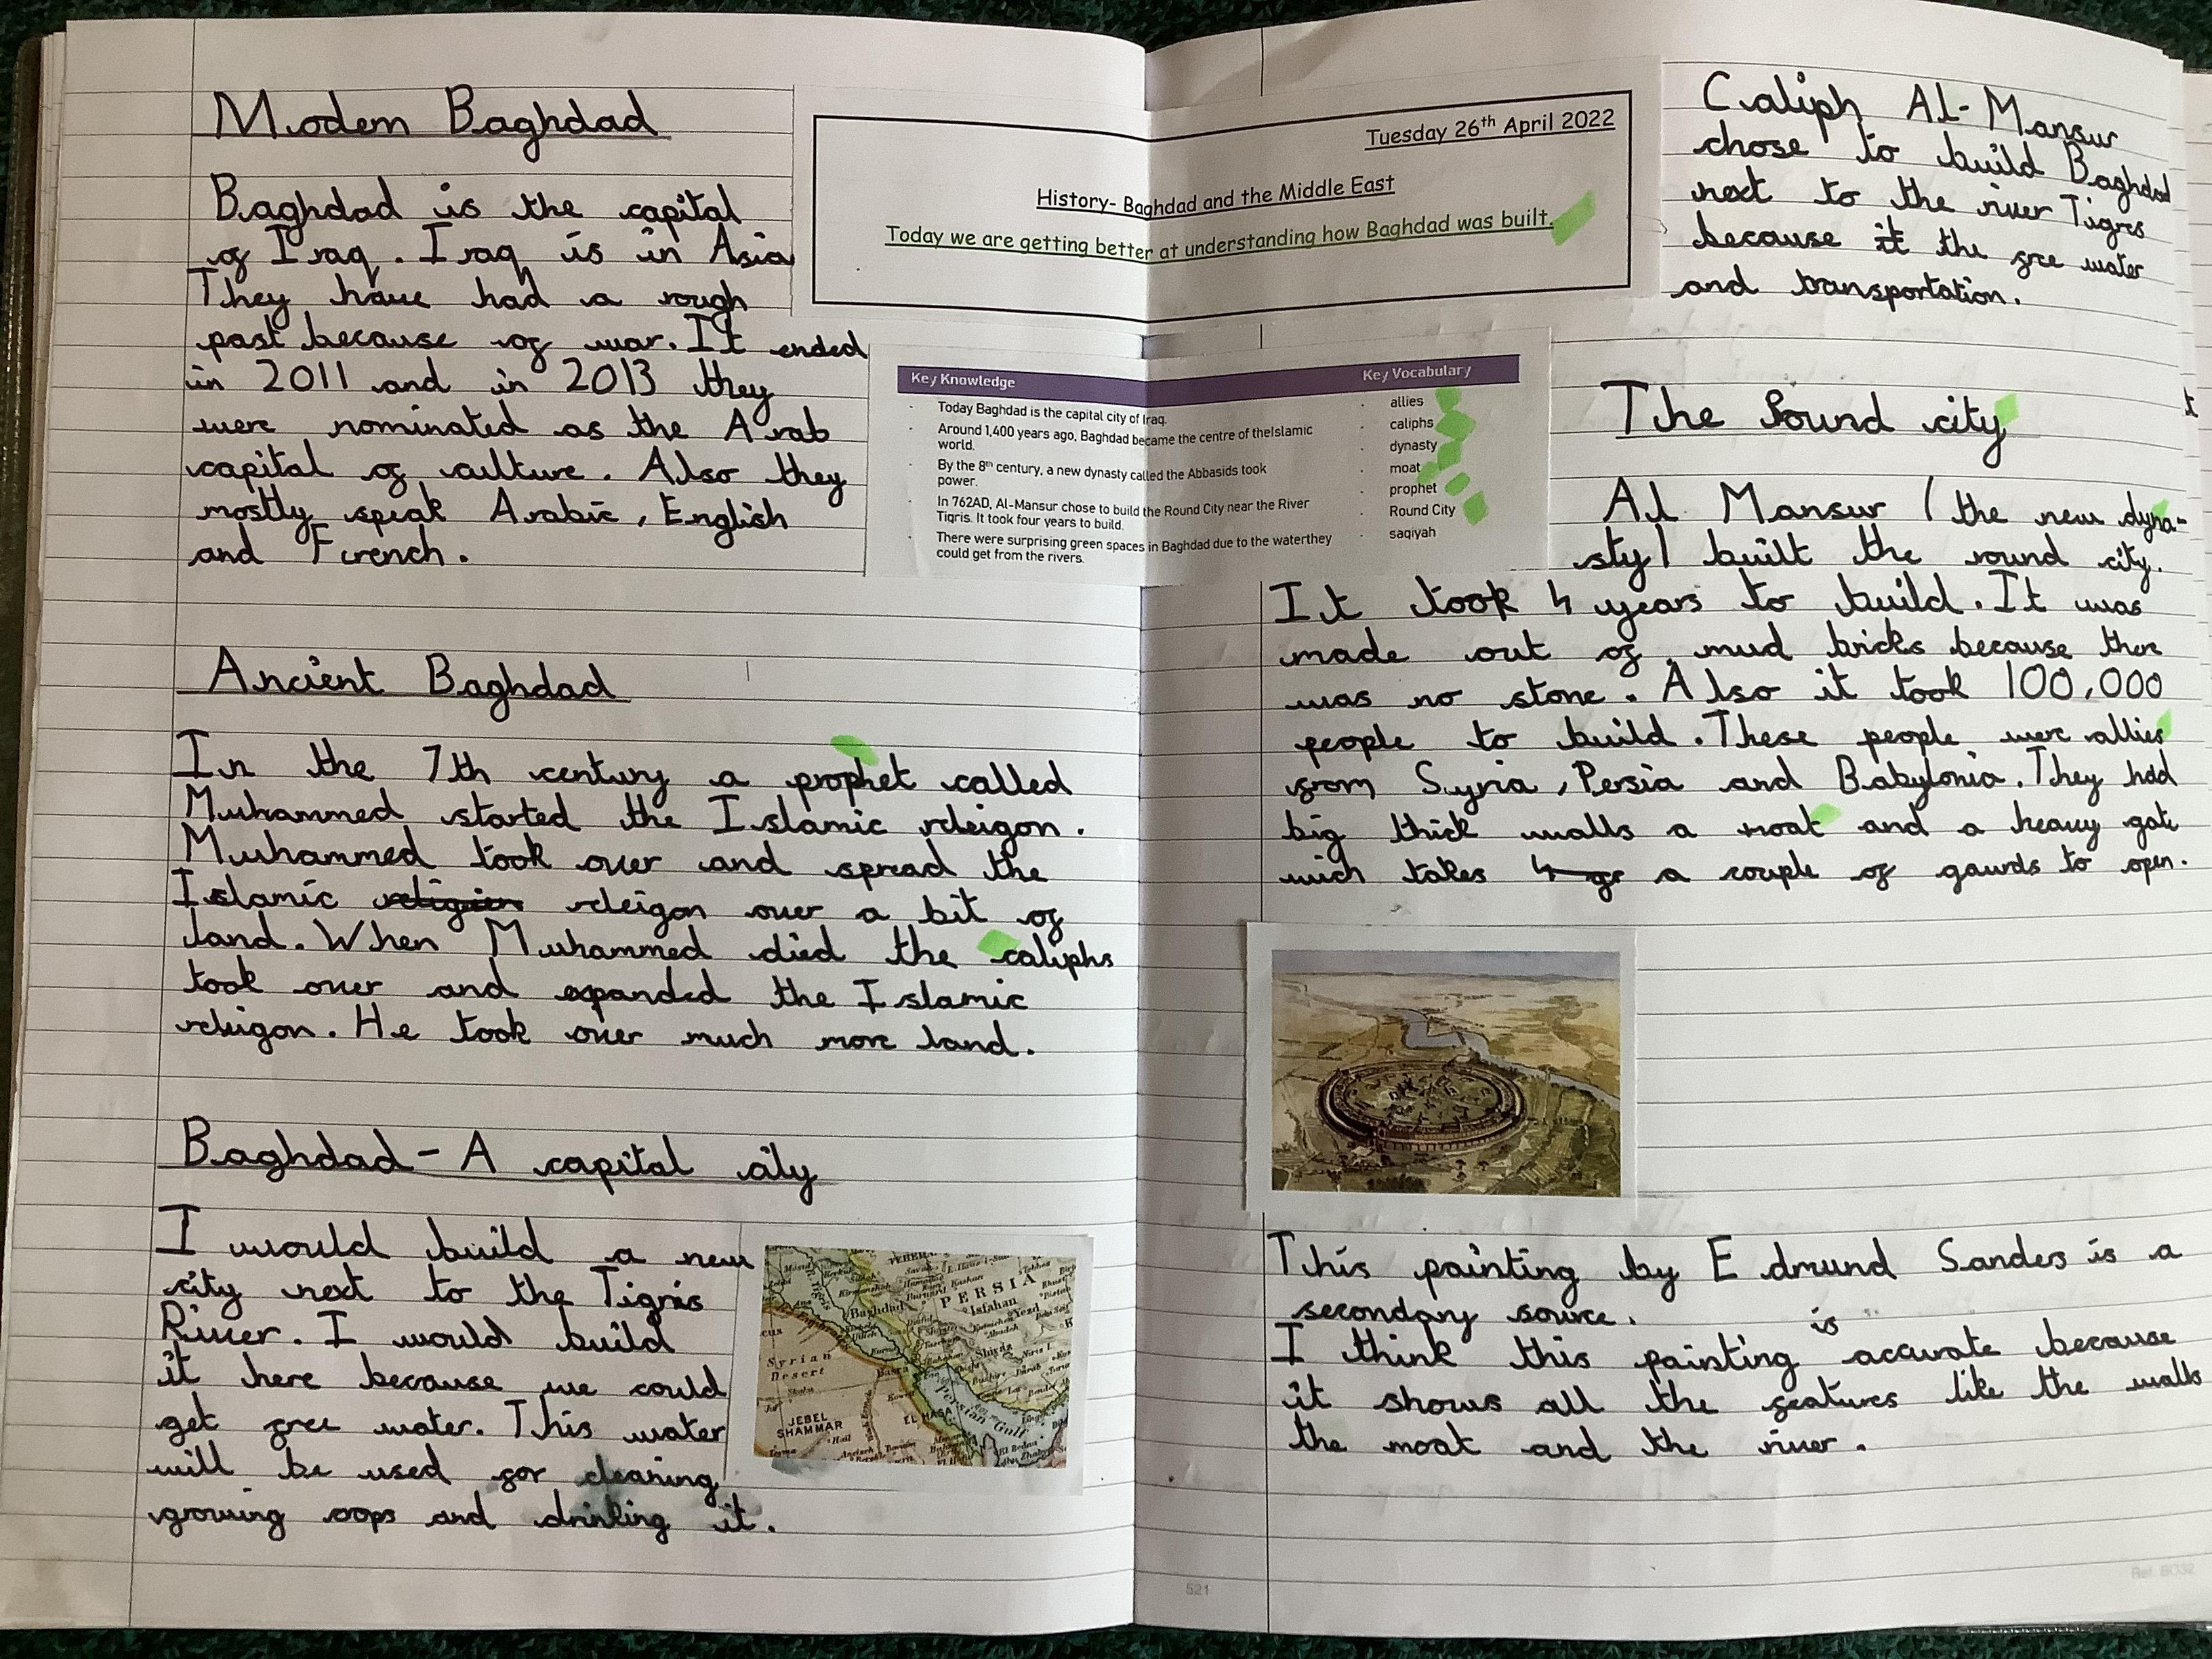 Modern Baghdad
Baghdad is the capital
of Iraq. Iraq is in Asia
They have had a rough
past because of war. It ended
in 2011 and in 2013 they
were nominated as the Arab
capital of culture. Also they
mostly speak Arabic, English
and French.
Ancient Baghdad
In the 7th century a prophet called
Muhammed started the Islamic releigon.
Muhammed took over and spread the
Islamic religion releigon over a bit of
land. When Muhammed died the caliphs
took over and expanded the Islamic
releigon. He took over much more land.
Baghdad - A capital city
I would build a new
city next to the Tigris
River. I would build
it here because we could
get free water. This water
will be used for cleaning
growing crops and drinking it.
PERSIA
Baghdad
Isfahan
Yezd
Shiraz
Syrian
Desert
JEBEL
SHAMMAR
EL HASA
Persian Gulf
Tuesday 26th April 2022
History- Baghdad and the Middle East
Today we are getting better at understanding how Baghdad was built.
Key Knowledge
- Today Baghdad is the capital city of Iraq.
- Around 1,400 years ago, Baghdad became the centre of theIslamic
world.
- By the 8th century, a new dynasty called the Abbasids took
power.
- In 762AD, Al-Mansur chose to build the Round City near the River
Tigris. It took four years to build.
- There were surprising green spaces in Baghdad due to the waterthey
could get from the rivers.
Key Vocabulary
- allies
- caliphs
- dynasty
- moat
- prophet
- Round City
- saqiyah
Caliph Al-Mansur
chose to build Baghdad
next to the river Tigres
because it the free water
and transportation.
The Round city
Al Mansur (the new dyna-
sty) built the round city.
It took 4 years to build. It was
made out of mud bricks because there
was no stone. Also it took 100,000
people to build. These people were allies
from Syria, Persia and Babylonia. They had
big thick walls a moat and a heavy gate
wich takes 4 a couple of gawrds to open.
This painting by Edmund Sanders is a
secondary source.
is
I think this painting accurate because
it shows all the features like the walls
the moat and the river.
521
Ref 6032